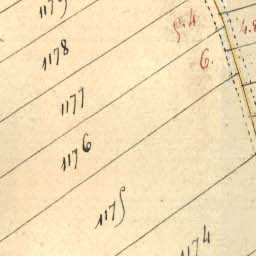 1179
1178
1177
1176
1175
1174
g. 4.
6.
4.8